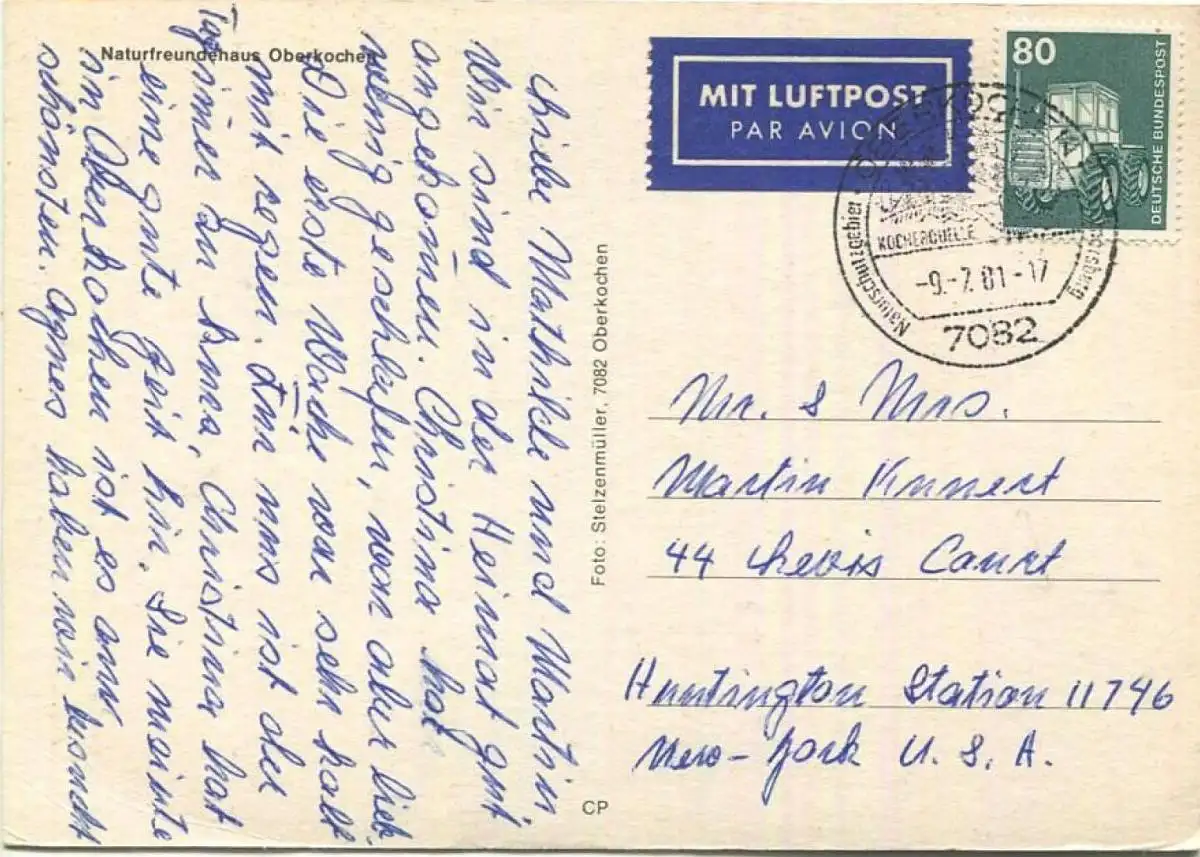 Naturfreundehaus Oberkochen
Liebe Mathilde und Martin
Wir sind in der Heimat gut
angekom̄en. Christina hat
wenig geschlafen, war aber lieb.
Die erste Woche war sehr kalt
mit regen. Für uns ist der
Tag
im̄er zu kurz, Christina hat
eine gute Zeit hir. Sie meinte
in Oberkochen ist es am
schönsten. Agnes haben wir besucht
Foto: Stelzenmüller, 7082 Oberkochen
CP
MIT LUFTPOST
PAR AVION
80
DEUTSCHE BUNDESPOST
OBERKOCHEN
KOCHERQUELLE
-9.-7.81-17
Naturschutzgebiet
7082
Mr. & Mrs.
Martin Kunert
44 Lewis Court
Huntington Station 11746
New-York U. S. A.